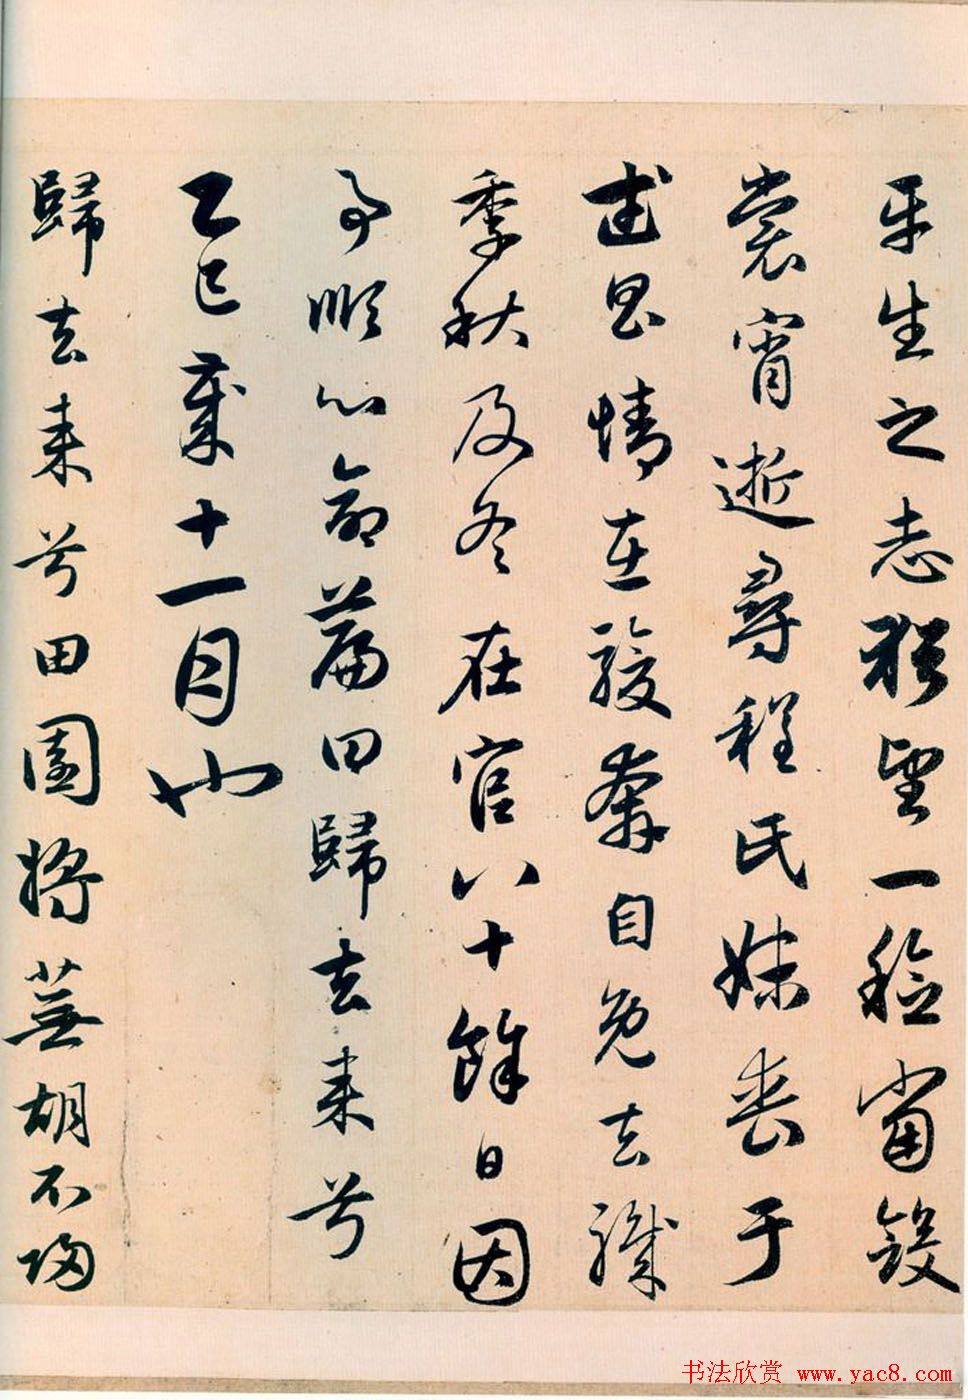 平生之志猶望一稔當斂
裳宵逝尋程氏妹喪于
武昌情在駿奔自免去職
季秋及冬在官八十餘日因
事順心命篇曰歸去来兮
乙巳歲十一月也
歸去来兮田園將蕪胡不歸
书法欣赏 www.yac8.com